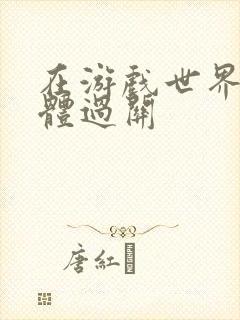 在游戲世界
體過關
唐紅